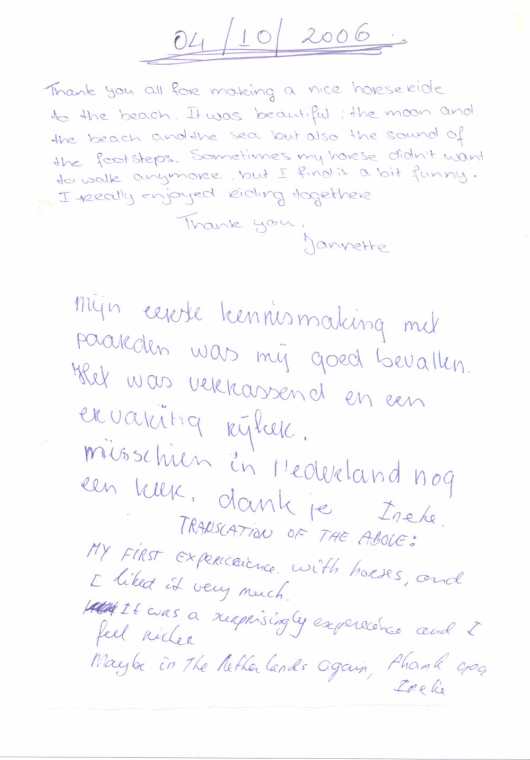 04/10/2006
Thank you all for making a nice horseride
to the beach. It was beautiful: the moon and
the beach and the sea but also the sound of
the footsteps. Sometimes my horse didn't want
to walk anymore, but I find is a bit funny.
I really enjoyed riding together
Thank you,
Jannette
Mijn eerste kennismaking met
paarden was mij goed bevallen.
Het was verrassend en een
ervaring rijker.
misschien in Nederland nog
een keer. dank je Ineke.
TRANSLATION OF THE ABOVE:
MY FIRST experience with horses, and
I liked it very much.
It was a surprisingly experience and I
feel richer
Maybe in the Netherlands again, thank you
Ineke